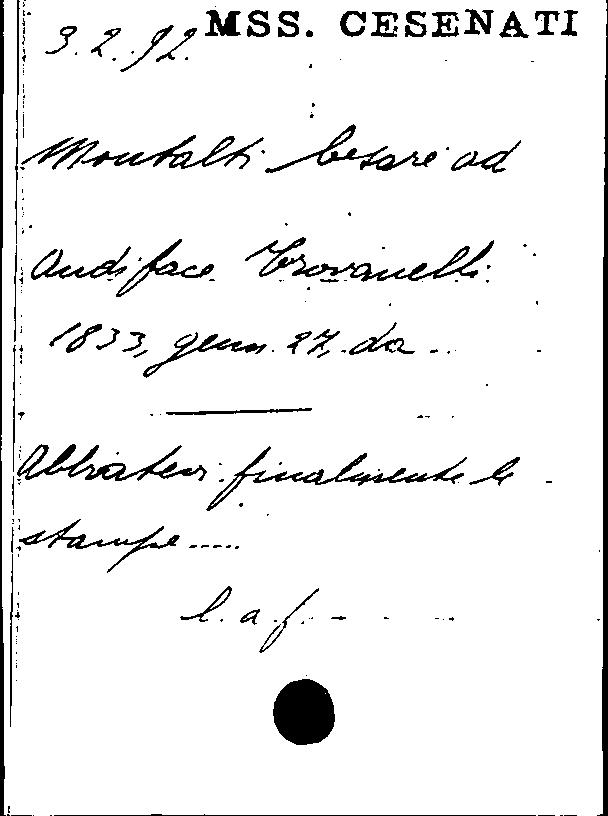 MSS. CESENATI
3.2.92.
Montalti Cesare ad
Audiface Trovanelli
1833, genn. 27, da ..
Abbiatevi finalmente le
stampe .....
l. a f.